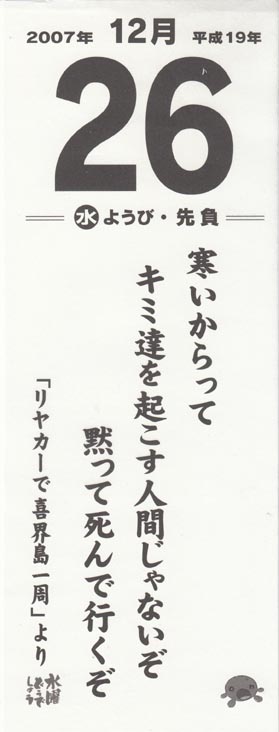 2007年 12月 平成19年
26
水ようび・先負
寒いからって
キミ達を起こす人間じゃないぞ
黙って死んで行くぞ
「リヤカーで喜界島一周」より
水曜
どうで
しょう